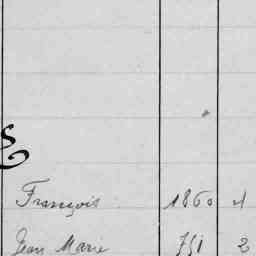 François 1860 4
Jean Marie 751 2